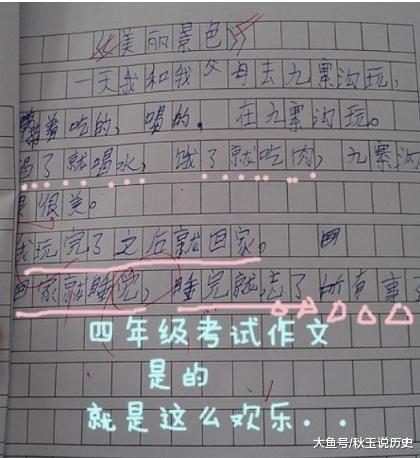 《美丽景色》
一天我和我父母去九寨沟玩,
带着吃的,喝的.在九寨沟玩。
渴了就喝水,饿了就吃肉,九寨沟
很美。
我玩完了之后就回家。
回家就睡觉,睡完就忘了所有事
四年级考试作文
是的
就是这么欢乐...
大鱼号/秋玉说历史